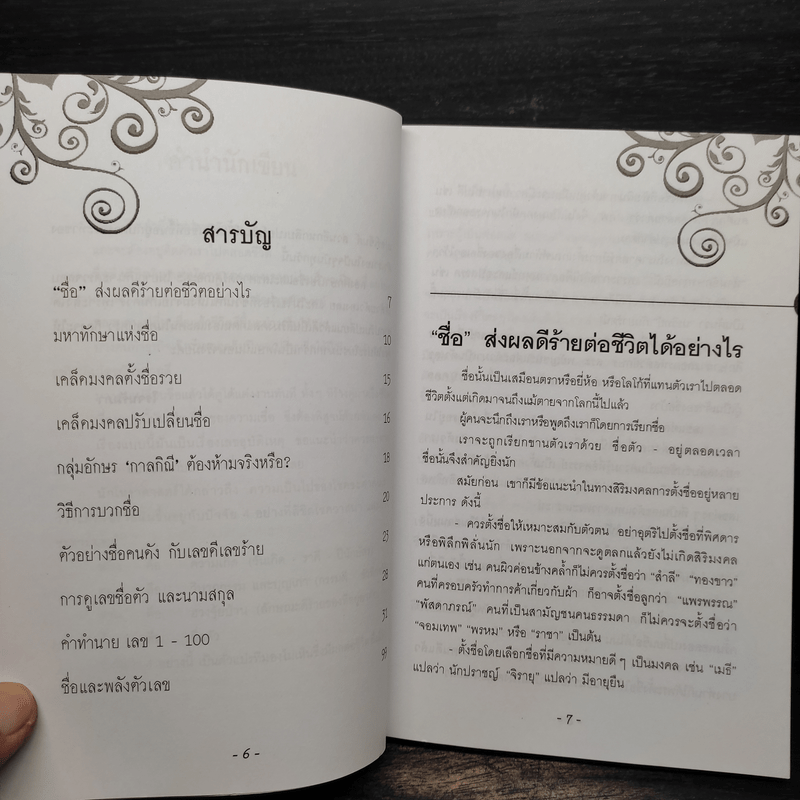 สารบัญ
“ชื่อ” ส่งผลดีร้ายต่อชีวิตอย่างไร 7
มหาทักษาแห่งชื่อ 10
เคล็ดมงคลตั้งชื่อรวย 15
เคล็ดมงคลปรับเปลี่ยนชื่อ 16
กลุ่มอักษร ‘กาลกิณี’ ต้องห้ามจริงหรือ? 18
วิธีการบวกชื่อ 20
ตัวอย่างชื่อคนดัง กับเลขดีเลขร้าย 23
การดูเลขชื่อตัว และนามสกุล 28
คำทำนาย เลข 1 - 100 31
ชื่อและพลังตัวเลข 99
- 6 -
“ชื่อ” ส่งผลดีร้ายต่อชีวิตได้อย่างไร
ชื่อนั้นเป็นเสมือนตราหรือยี่ห้อ หรือโลโก้ที่แทนตัวเราไปตลอด
ชีวิตตั้งแต่เกิดมาจนถึงแม้ตายจากโลกนี้ไปแล้ว
ผู้คนจะนึกถึงเราหรือพูดถึงเราก็โดยการเรียกชื่อ
เราจะถูกเรียกขานตัวเราด้วย ชื่อตัว - อยู่ตลอดเวลา
ชื่อนั้นจึงสำคัญยิ่งนัก
สมัยก่อน เขาก็มีข้อแนะนำในทางสิริมงคลการตั้งชื่ออยู่หลาย
ประการ ดังนี้
- ควรตั้งชื่อให้เหมาะสมกับตัวตน อย่าอุตริไปตั้งชื่อที่พิศดาร
หรือพิลึกพิลั่นนัก เพราะนอกจากจะดูตลกแล้วยังไม่เกิดสิริมงคล
แก่ตนเอง เช่น คนผิวค่อนข้างคล้ำก็ไม่ควรตั้งชื่อว่า “สำลี” “ทองขาว”
คนที่ครอบครัวทำการค้าเกี่ยวกับผ้า ก็อาจตั้งชื่อลูกว่า “แพรพรรณ”
“พัสดาภรณ์” คนที่เป็นสามัญชนคนธรรมดา ก็ไม่ควรจะตั้งชื่อว่า
“จอมเทพ” “พรหม” หรือ “ราชา” เป็นต้น
- ตั้งชื่อโดยเลือกชื่อที่มีความหมายดีๆ เป็นมงคล เช่น “เมธี”
แปลว่า นักปราชญ์ “จิรายุ” แปลว่า มีอายุยืน
- 7 -